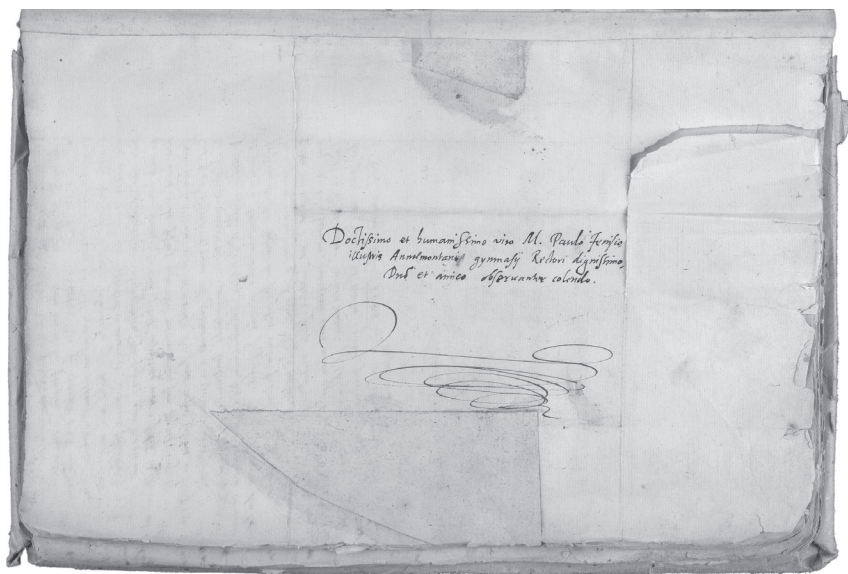 Doctissimo et humanissimo viro M. Paulo Jenisio,
illustris Annæmontani gymnasij Rectori dignissimo,
Dnõ et amico observanter colendo.